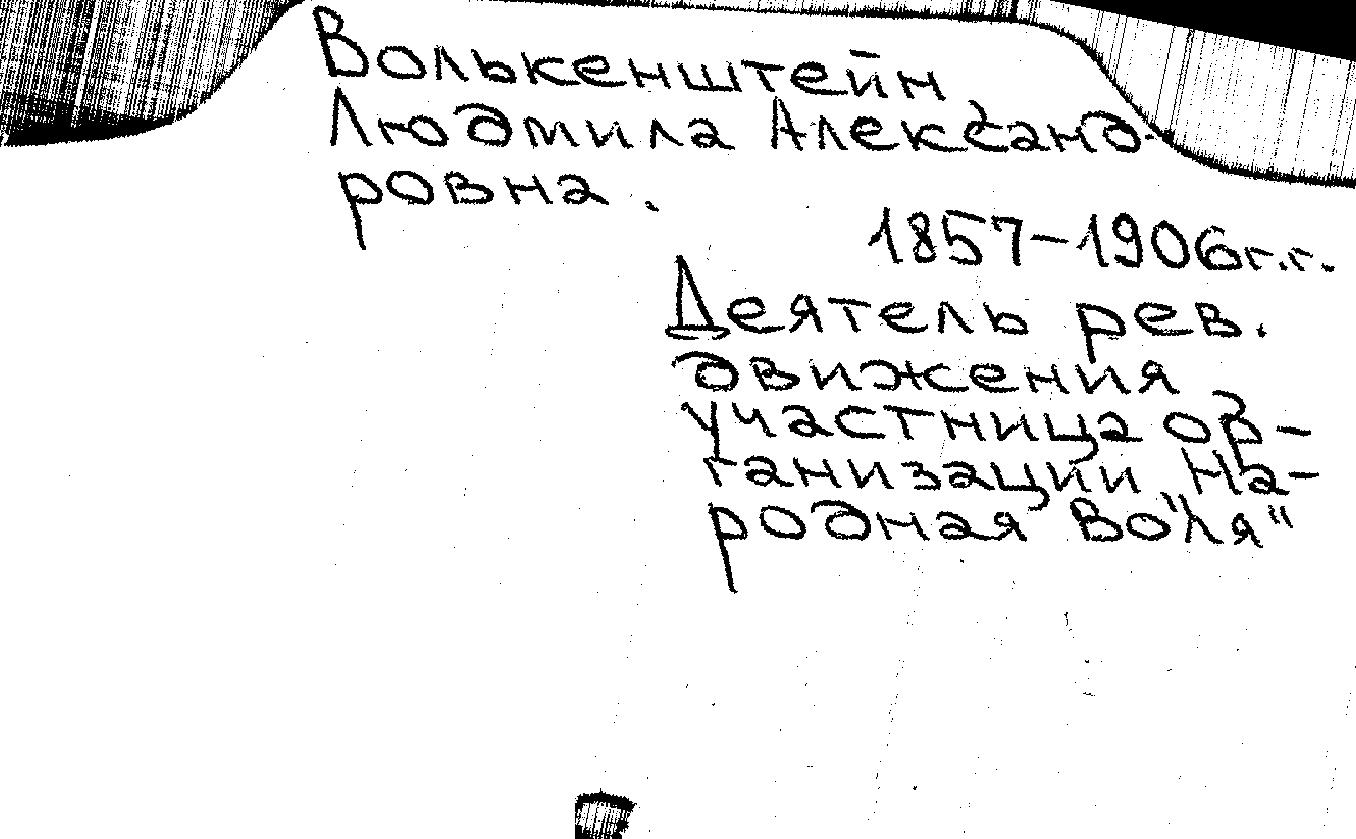 Волькенштейн
Людмила Александ-
ровна.
1857-1906г.г.
Деятель рев.
движения
участница ор-
ганизации "На-
родная воля"